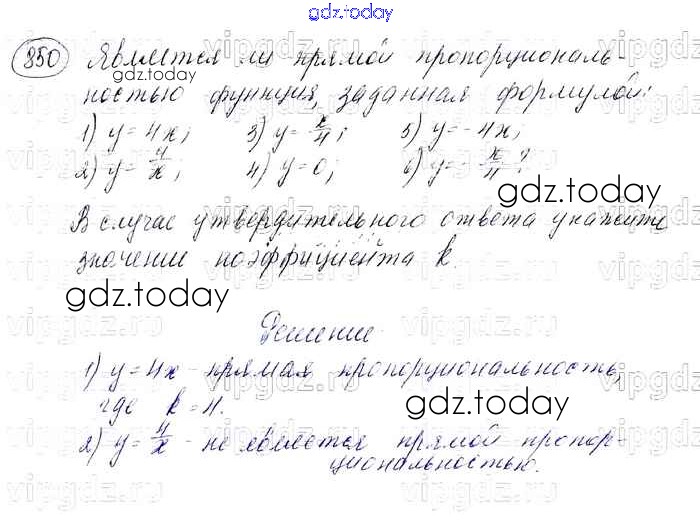 gdz.today
850) Является ли прямой пропорциональ-
gdz.today
ностью функция, заданная формулой:
1) y = 4x; 3) y = x/4; 5) y = -4x;
2) y = 4/x; 4) y = 0; 6) y = -x/4?
gdz.today
В случае утвердительного ответа укажите
значение коэффициента k.
gdz.today
Решение
1) y = 4x - прямая пропорциональность,
где k = 4.
gdz.today
2) y = 4/x - не является прямой пропор-
циональностью.